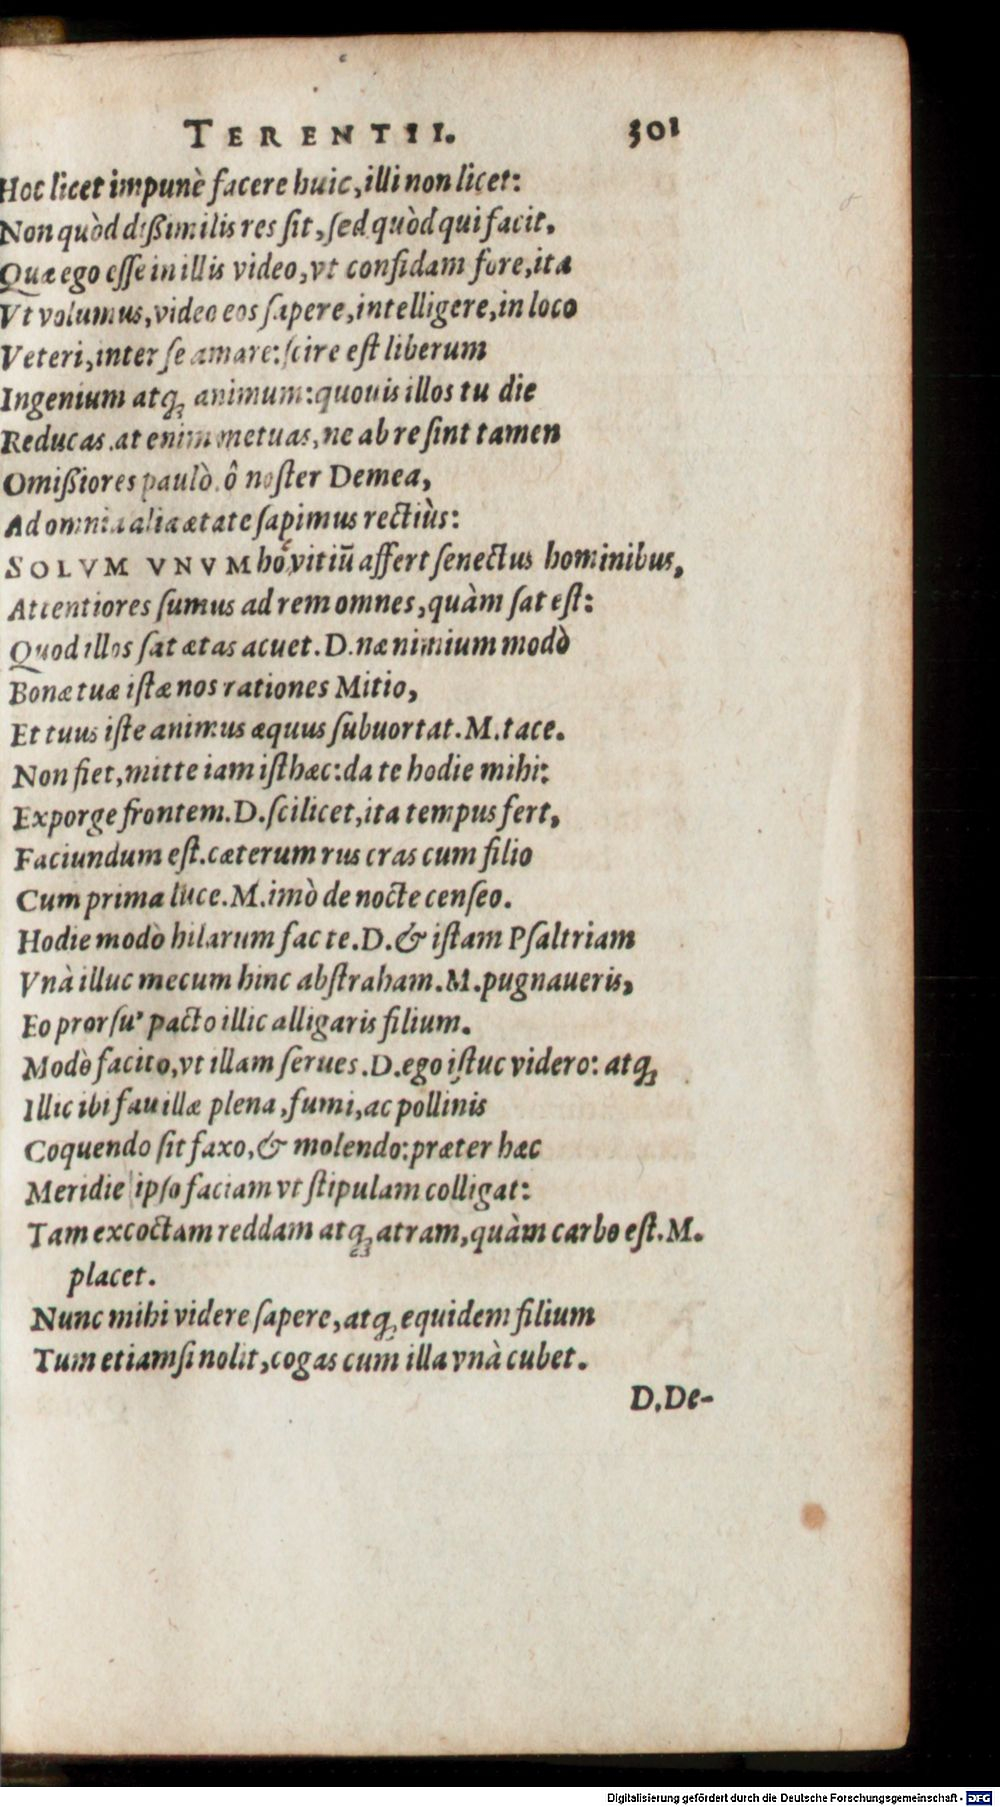 TERENTII. 301
Hoc licet impunè facere huic, illi non licet:
Non quòd dißimilis res ſit, ſed quòd qui facit.
Quæ ego eſſe in illis video, vt confidam fore, ita
Vt volumus, video eos ſapere, intelligere, in loco
Veteri, inter ſe amare: ſcire eſt liberum
Ingenium atq; animum: quouis illos tu die
Reducas. at enim metuas, ne ab re ſint tamen
Omißiores paulò. ô noſter Demea,
Ad omnia alia ætate ſapimus rectiùs:
SOLVM VNVM hoc vitiū affert ſenectus hominibus,
Attentiores ſumus ad rem omnes, quàm ſat eſt:
Quod illos ſat ætas acuet. D. næ nimium modò
Bonæ tuæ iſtæ nos rationes Mitio,
Et tuus iſte animus æquus ſubuortat. M. tace.
Non fiet, mitte iam iſthæc: da te hodie mihi:
Exporge frontem. D. ſcilicet, ita tempus fert,
Faciundum eſt. cæterum rus cras cum filio
Cum prima luce. M. imò de nocte cenſeo.
Hodie modò hilarum fac te. D. & iſtam Pſaltriam
Vnà illuc mecum hinc abſtraham. M. pugnaueris,
Eo prorſu' pacto illic alligaris filium.
Modò facito, vt illam ſerues. D. ego iſtuc videro: atq;
Illic ibi fauillæ plena, fumi, ac pollinis
Coquendo ſit faxo, & molendo: præter hæc
Meridie ipſo faciam vt ſtipulam colligat:
Tam excoctam reddam atq; atram, quàm carbo eſt. M.
placet.
Nunc mihi videre ſapere, atq; equidem filium
Tum etiamſi nolit, cogas cum illa vnà cubet.
D. De-
Digitalisierung gefördert durch die Deutsche Forschungsgemeinschaft - DFG